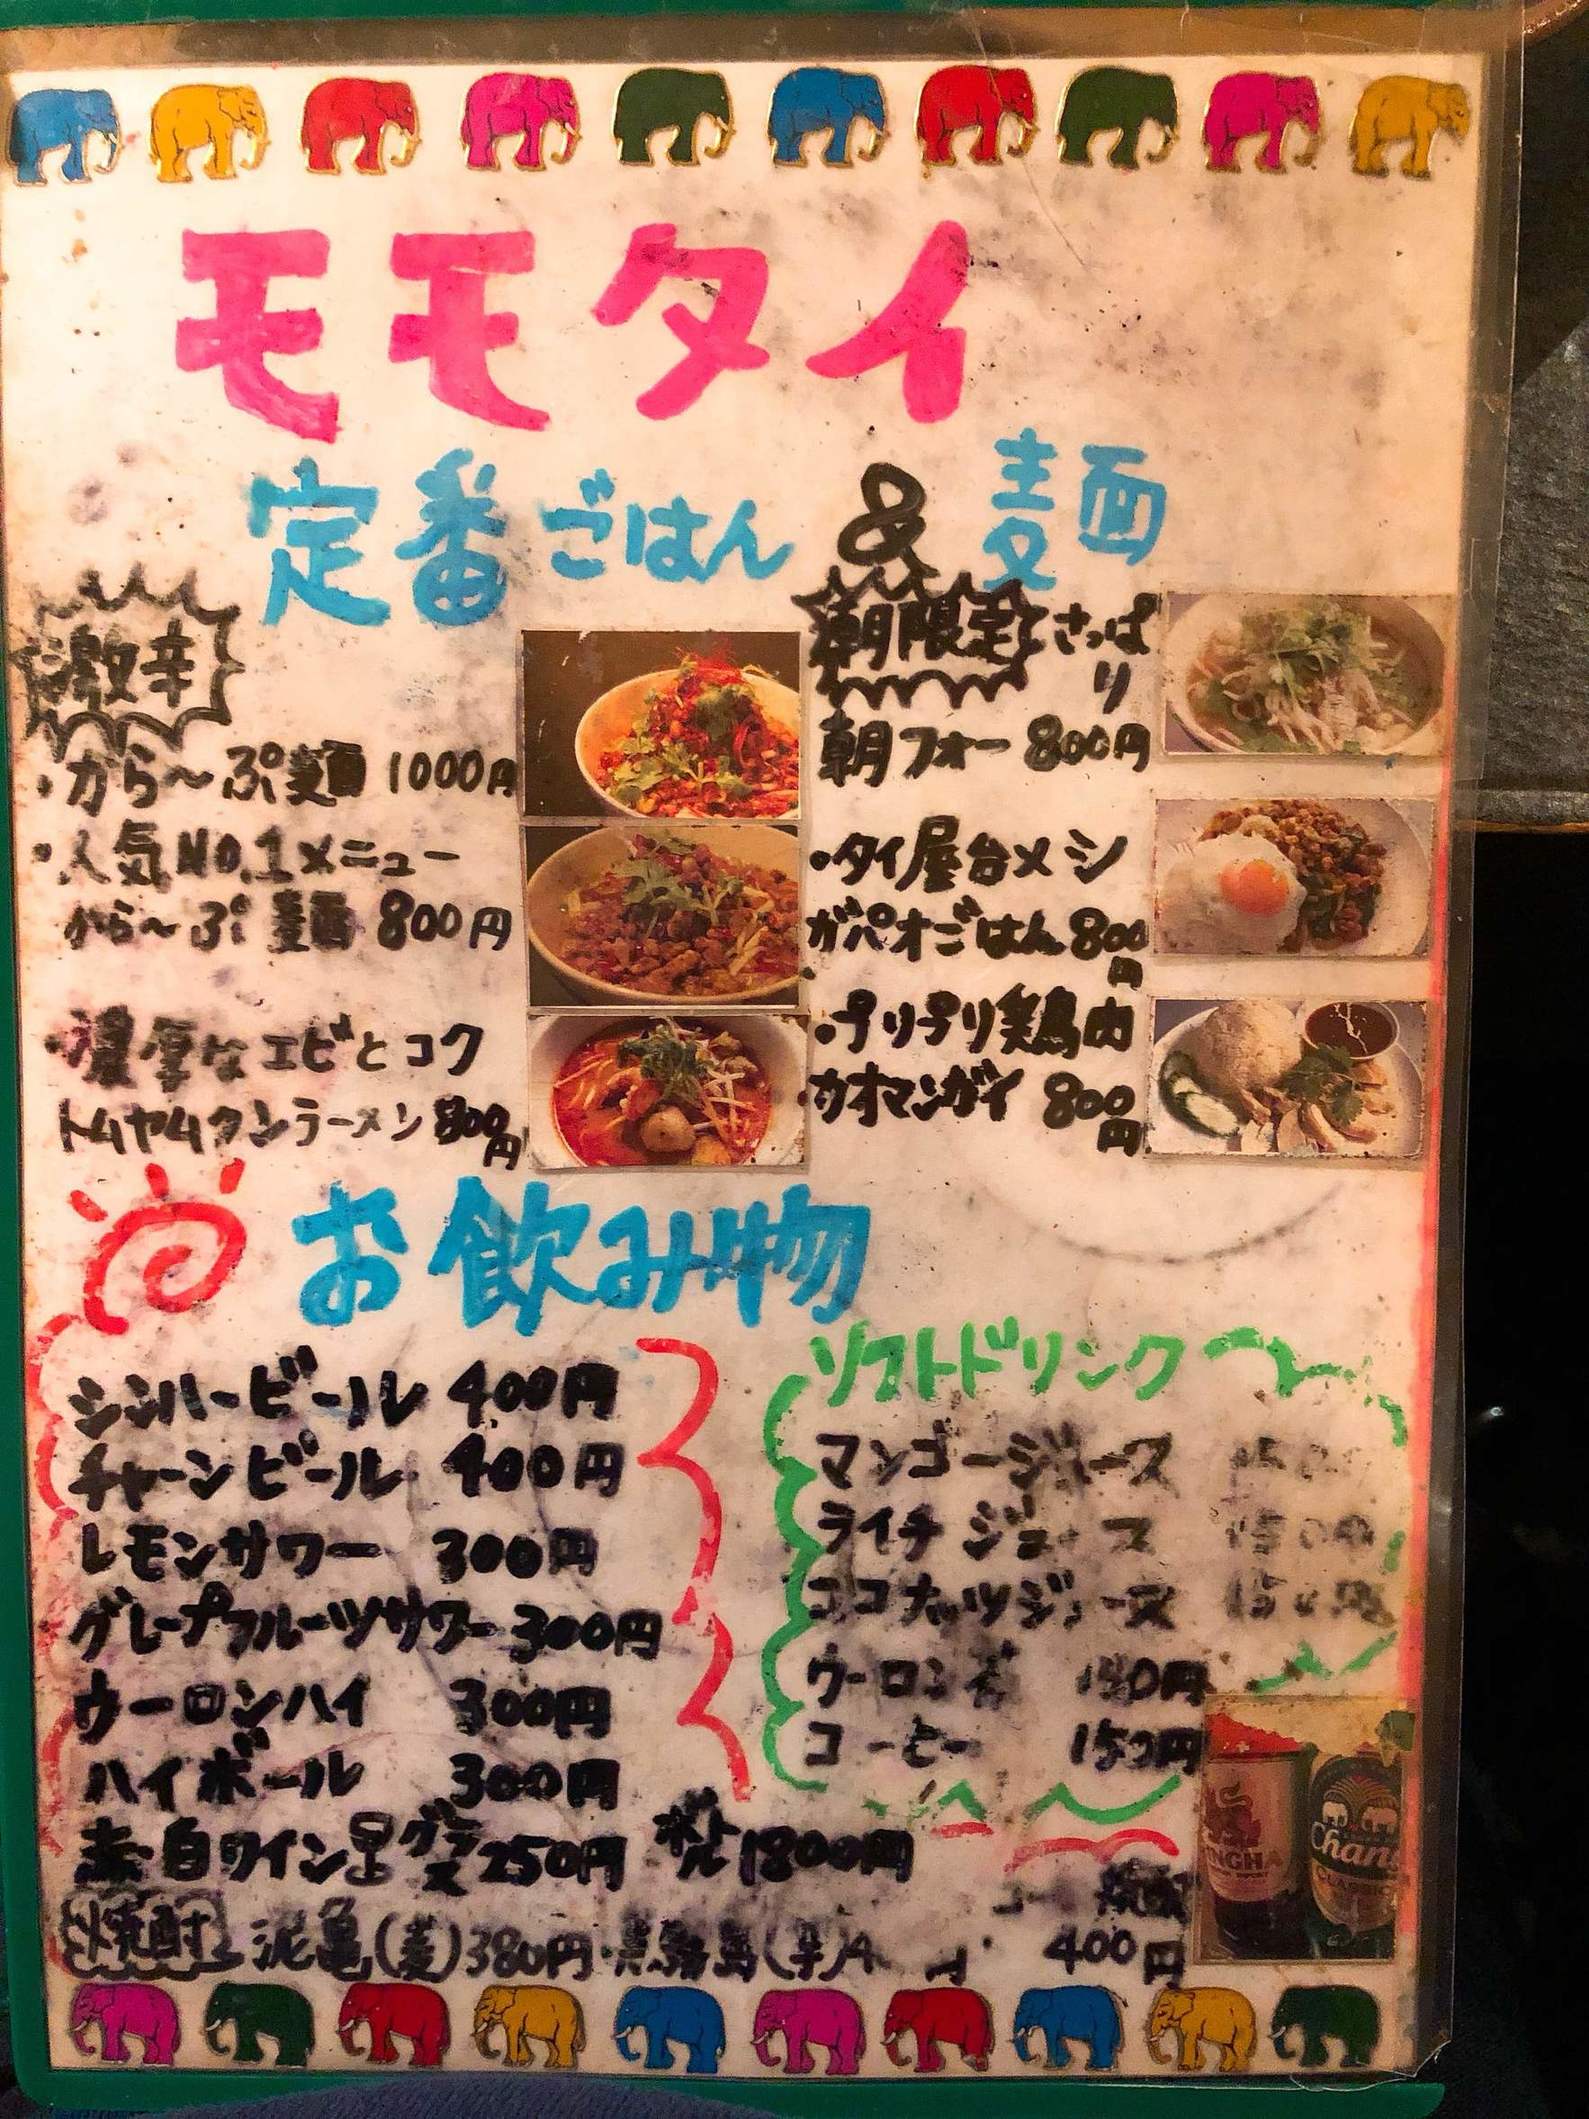 モモタイ
定番ごはん & 麺
激辛
・から〜ぷ麺 1000円
・人気NO.1メニュー
から〜ぷ麺 800円
・濃厚なエビとコク
トムヤムクンラーメン 800円
朝限定 さっぱり
朝フォー 800円
・タイ屋台メシ
ガパオごはん 800円
・プリプリ鶏肉
カオマンガイ 800円
お飲み物
シンハービール 400円
チャーンビール 400円
レモンサワー 300円
グレープフルーツサワー 300円
ウーロンハイ 300円
ハイボール 300円
赤・白ワイン グラス 250円 ボトル 1800円
焼酎 泥亀(麦) 380円・黒霧島(芋)
400円
ソフトドリンク
マンゴージュース
ライチジュース 150円
ココナッツジュース
ウーロン茶 150円
コーヒー 150円
Chang
CLASSIC